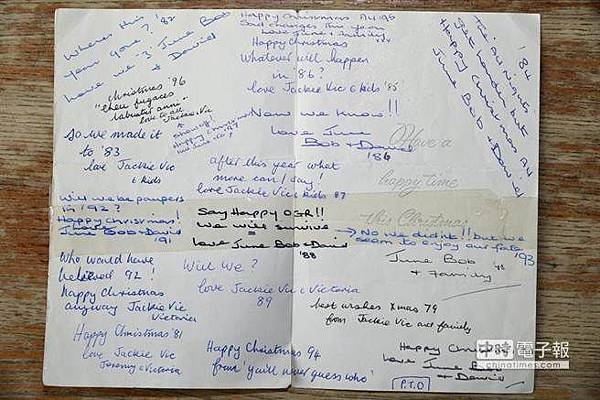 Where this '82
year gone?
love June Bob
& David
Christmas '96
"eheu fugaces
labuntur anni"
love to all
Jackie Vic
So we made it
to '83
love Jackie Vic
& kids
Will we be paupers
in '92?
Happy Christmas!
June Bob & David
'91
Who would have
believed 92!
happy Christmas
anyway Jackie Vic
Victoria
Happy Christmas '81
love Jackie Vic
Jeremy & Victoria
Happy Christmas All
love June & family
Happy Christmas
Whatever will happen
in '86?
love Jackie Vic & kids '85
Now we know!!
love June
Bob & David
'86
after this year what
more can I say!
love Jackie Vic & kids 87
Say Happy
We will survive
love June Bob & David
'88
Will We?
love Jackie Vic & Victoria
89
Happy Christmas 94
from 'you'll never guess who'
'84
get harder but
Happy Christmas All
June Bob & David
Have a
happy time
this Christmas
→ No we didn't!! but we
seem to enjoy our fate '93
June Bob
& Family
best wishes Xmas 79
from Jackie Vic and family
Happy Christmas
love June Bob
& David
P.T.O
中時電子報
chinatimes.com